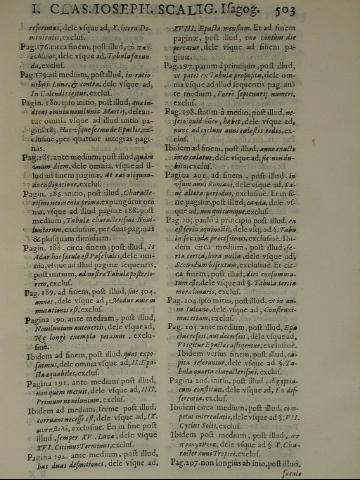 I. CLAS. IOSEPH. SCALIG. Isagog. 503
referimus, dele vsque ad, X. Iterea Do-
menicalis, exclus.
Pag. 176. circa finem, post illud,
dele vsque ad, Tabula facun-
da, exclus.
Pag. 179. ad medium, post illud, in ratio
nibus Lunæ, & contra, dele vsque ad,
In Calendis igitur, exclus.
Pagin. 180. ipso initio, post illud, quæ in-
cat omnia nouilunia Martij, delean-
tur omnia vsque ad illud initio pa-
gin. 185. Hac vsque sermo de Epactis, ex-
clusiuè, per quatuor integras pagi-
nas.
Pag. 185. ante medium, post illud, quàm
vnum diem, dele omnia, vsque ad il-
lud ad finem paginæ, At tas aliquan-
do exstigserit, exclus.
Pagin. 186. initio, post illud, Characte-
rismi nouennio prima, expungãtur om
nia, vsque ad illud pagina 188. post
medium, Tabula characterismi Noui-
luniorum, exclusiuè, per duas paginas
& plusquam dimidium.
Pagin. 188. circa finem, post illud, Is
Mar hot seculo est Paschalis, dele om-
nia, vsque ad illud pagina sequenti,
post initium, ad nostra Tabula posterio-
rem, exclus.
Pag. 189. ad finem, post illud, sue 304.
annos, dele vsque ad, Modus annus
mutationis est, exclus.
Pagina 190. ante medium, post illud,
Nouilunium antecuerit, dele vsque ad,
Ne longè exempla petamus, exclu-
siuè.
Ibidem ad finem, post illud, quas expo-
suimus, dele omnia vsque ad, II. Epa-
cta æquabiles, exclus.
Pagina 191. ante medium, post illud,
non quam mecuit, dele vsque ad, IIII.
Primum nouilunium, exclus.
Ibidem ad medium, ferme post illud,
corruat necesse est, dele vsque ad, IX.
exclusiuè. En in fine post
illud, Semper XV. Luna, dele vsque
XVI. Cicimus Terminus, exclus.
Pagina 192. ante medium, post illud,
has duas desinitiones, dele vsque ad,
XVIII. Epacta mensium. Et ad finem
paginæ, post illud, vna tantùm die
percutat, dele vsque ad finem pa-
ginæ.
Pag. 197. parum à principio, post illud,
vt patet ex Tabula proposita, dele om-
nia vsque ad illud sequenti pag. an-
te medium, Porrò septenarij numeri,
exclus.
Pag. 198. statim à medio, post illud, ne-
scio quid boni, habet, dele vsque ad,
nunc ad cyclum anni cælestis redeo, ex-
clus.
Ibidem ad finem, post illud, anno exacto
intercalatur, dele vsque ad, sic non du-
bito, exclus.
Pagina 201. ad finem, post illud, in
vsum anni Romani, dele vsque ad, Ta-
m altera postidas, exclusiuè. Et in fi-
ne paginæ, post illud, dele vs-
que ad, nunquicunque, exclus.
Pag. 203. paulò à principio post illud, ex
asserta aquinoctij, dele vsq. ad §. Tabu
la secunda præcessionis, exclusiuè. Ibi-
dem circa medium post illud, se-
ria tertia, hora nulla, dele vsque ad,
Secundum bisextum, exclusiuè. Et cir-
ca finem, post illud, diei consumma-
tum est, dele vsque ad §. Tabula tertia
mercalmaris, exclus.
Pag. 204. ipso initio, post illud, et in an-
no Iuliano, dele vsque ad, Confraxi-
mutatione, exclus.
Pag. 205. ante medium, post illud, Epa
cta resistit, aut decresit, dele vsque ad,
Vi igitur Epactis assignenur, exclusiuè.
Ibidem versus finem, post illud, ca-
pita referuntur, dele vsque ad §. Ta-
bula quarta characterismi, exclus.
Pagina 206. initio, post illud, Aegyptia-
cum constituit, dele vsque ad, En dif-
ferentia, exclus.
Ibidem circa medium, post illud, com-
petit intercalatio, dele vsque ad §. VII.
Cyclus Solis, exclus.
Ibidem post medium, post illud,
dele vsque ad §. X. Cha-
racter anni Tropici, exclus.
Pag. 207. non longius ab inio, post illud,
sæcula